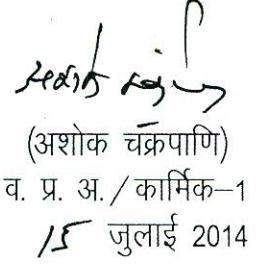 (अशोक चक्रपाणि)
व. प्र. अ. / कार्मिक–1
जुलाई 2014